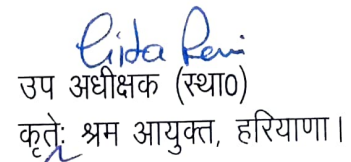 Gita Rani
उप अधीक्षक (स्था0)
कृतेः श्रम आयुक्त, हरियाणा।